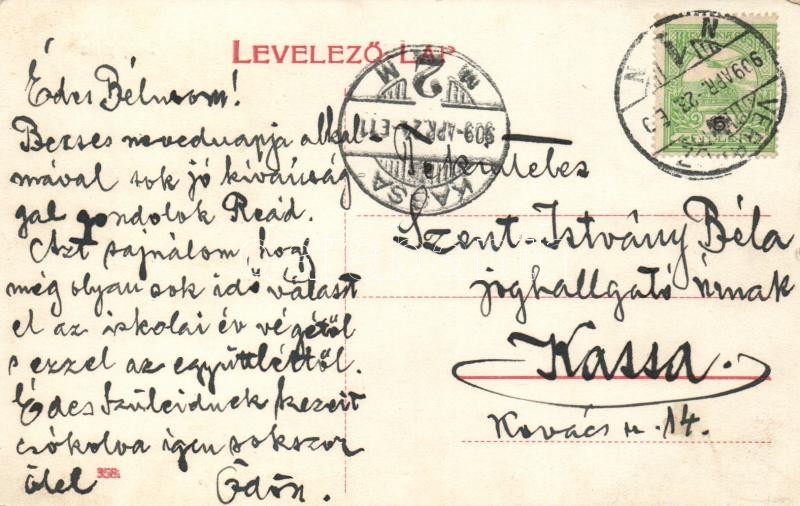 LEVELEZŐ LAP
Édes Bélusom!
Becses nevednapja alkal
mával sok jó kívánság
gal gondolok Reád.
Azt sajnálom hogy
még olyan sok idő választ
el az iskolai év végétől
s ezzel az együttléttől.
Édes Szüleidnek kezeit
csókolva igen sokszor
ölel Ödön.
358.
KASSA
909-APR.24.
M 2 M
909 APR. 23.
Szent-Istvány Béla
joghallgató úrnak
Kassa.
Kovács u. 14.